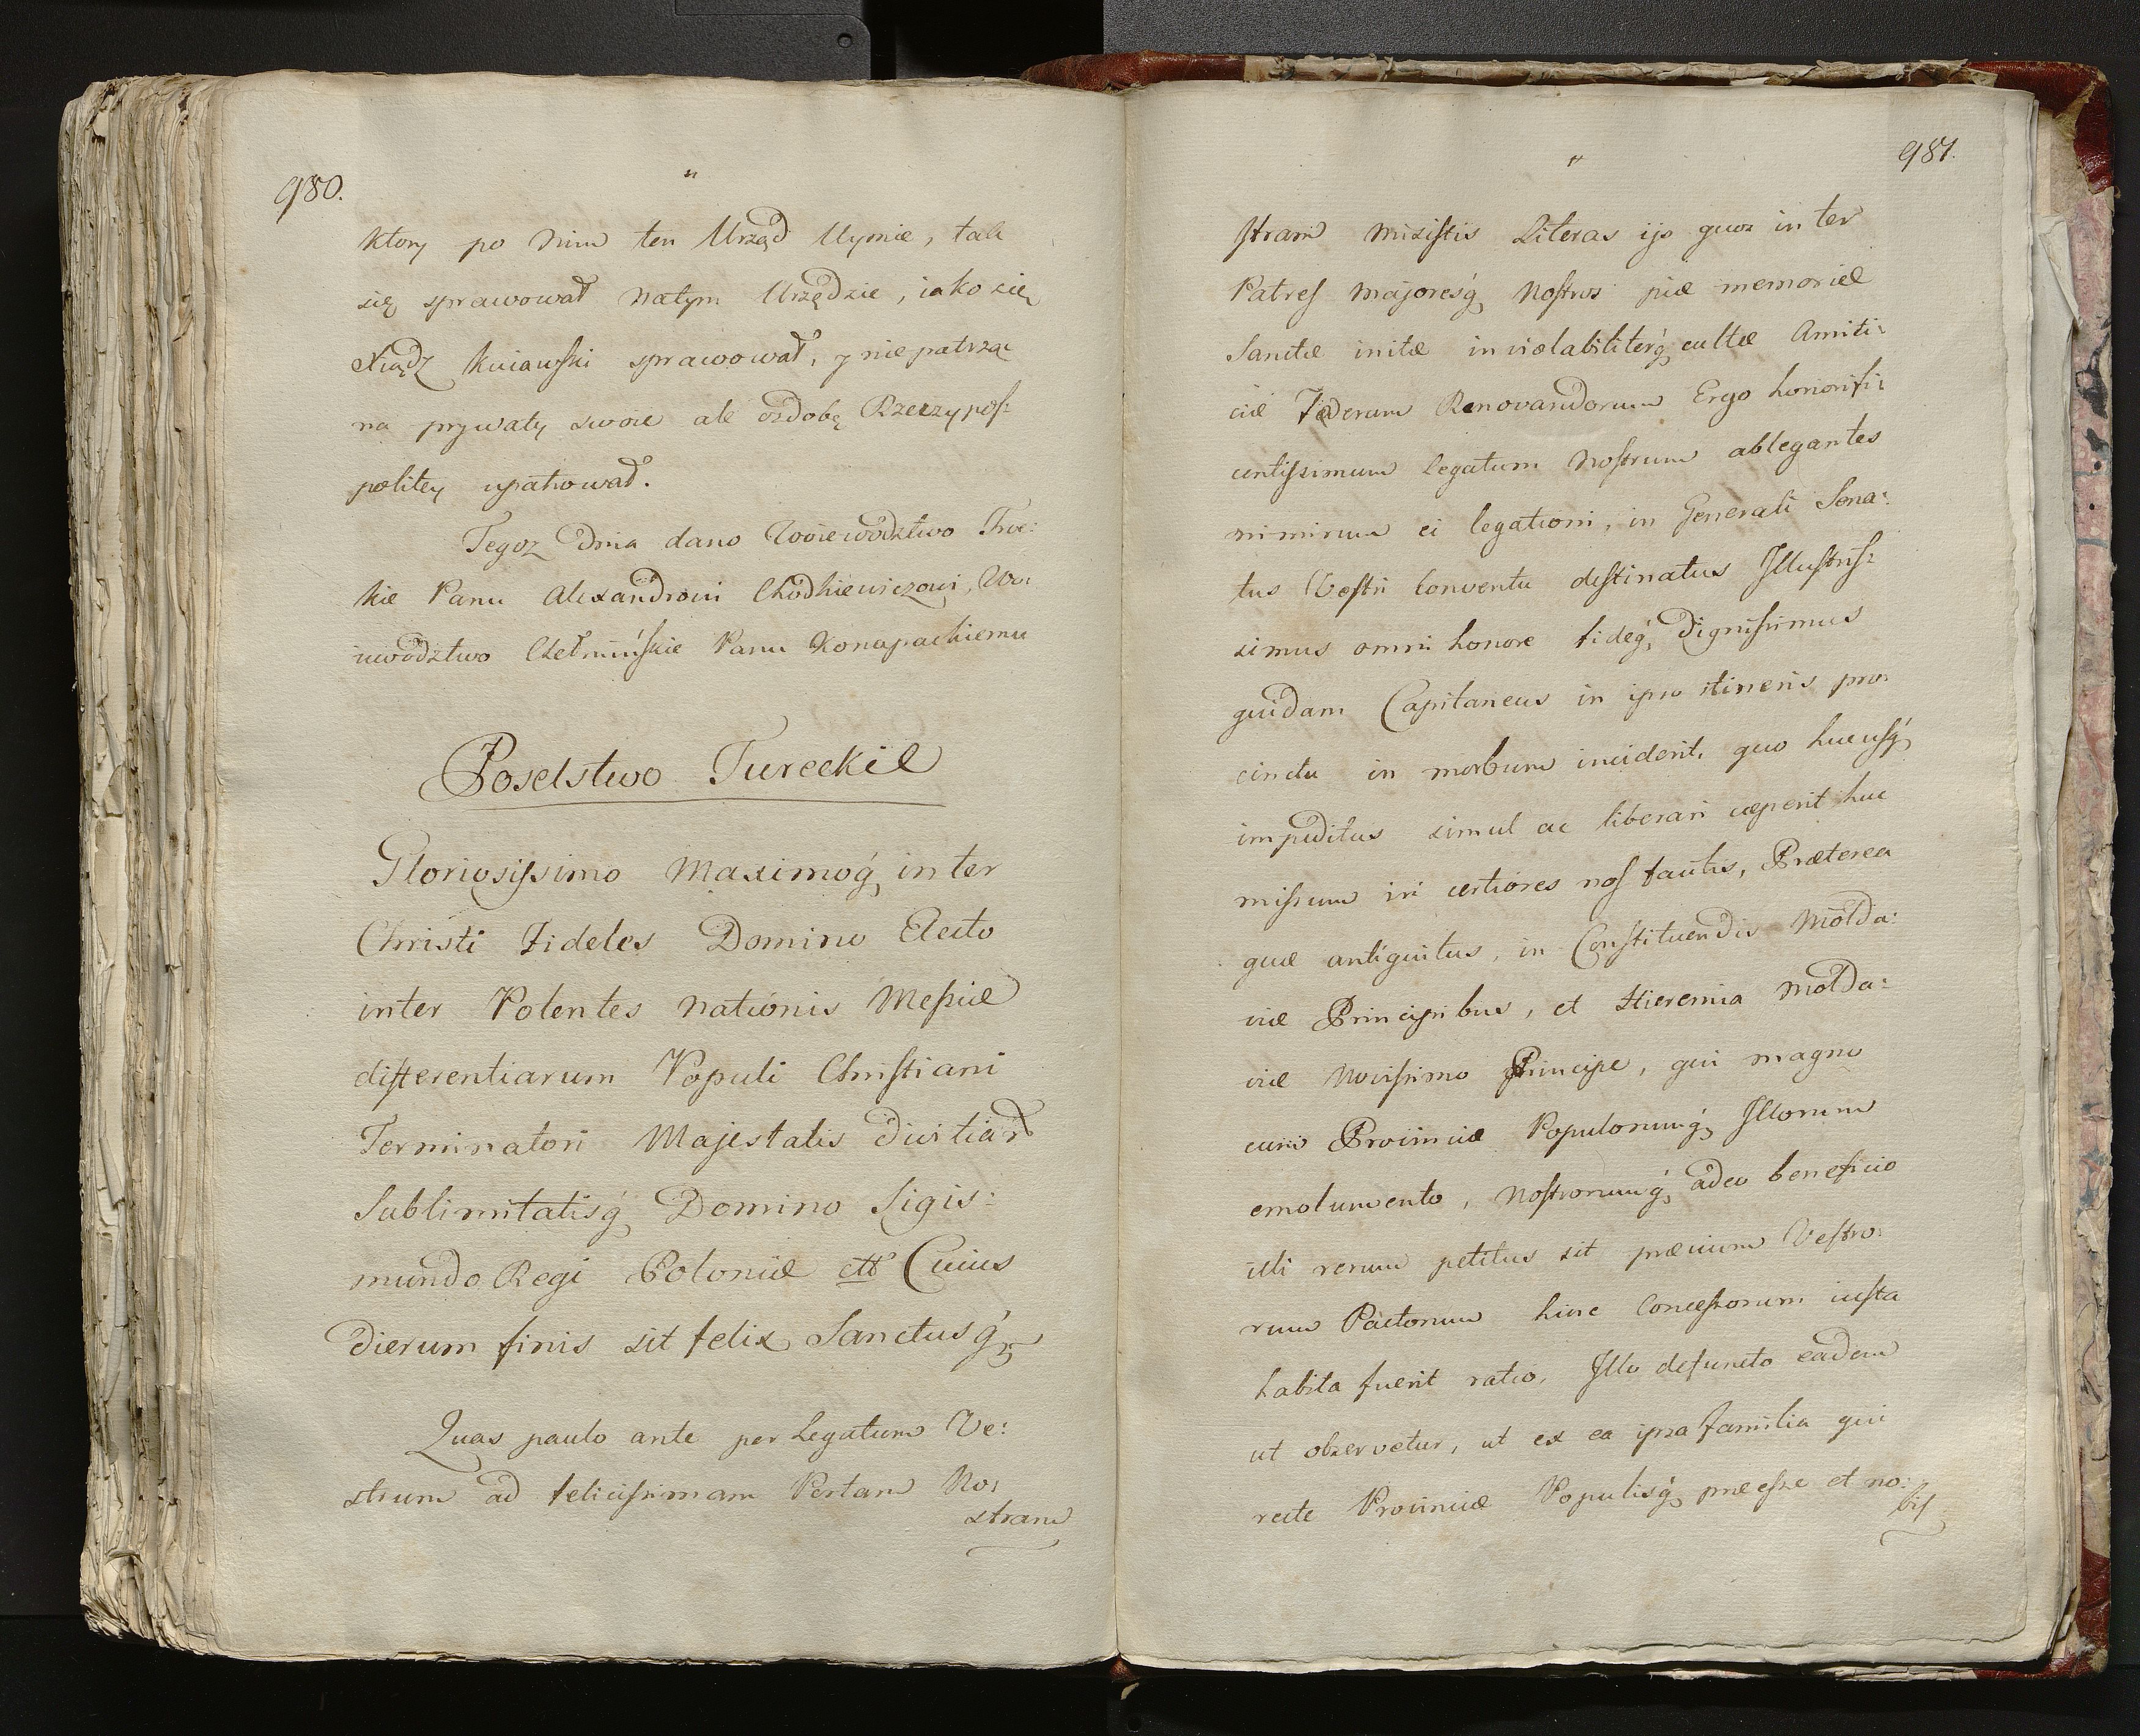 980.
"
ktory po nim ten Urząd Uymie, tak
się sprawował natym Urzędzie, iako się
Xiądz Kuiawski sprawował, y nie patrząc
na prywaty swoie ale ozdobę Rzeczypos:
politey upatrował.
Tegoz Dnia dano Woiewodztwo Troc:
kie Panu Alexandrowi Chodkiewiczowi, Wo:
iewodztwo Chełminskie Panu Konapackiemu
Poselstwo Tureckie
Gloriosissimo Maximoq́ inter
Christi Fideles Domino Electo
inter Potentes nationis Messiæ
differentiarum Populi Christiani
Terminatori Majestatis Divitiar
Sublimitatisq́ Domino Sigis:
mundo Regi Poloniæ ett Cuius
Dierum finis sit felix Sanctusq́
Quas paulo ante per Legatum Ve:
strum ad felicissimam Portam No:
stram
981.
"
stram misistis Literas ijs quos inter
Patres majoresq́ Nostros piæ memoriæ
Sanctæ initæ inviolabiliterq́ cultæ Amiti:
ciæ Fæderum Renovandorum Ergo honorifi:
centissimum Legatum Nostrum ablegantes
nimirum ei legationi, in Generali Sena:
tus Vestri Conventu destinatus Illustris:
simus omni honore fideq́ Dignissimus
quidam Capitaneus in ipso itineris pro:
cinctu in morbum inciderit, quo hucusq́
impeditus simul ac liberari cæperit huc
missum iri certiores nos facitis, Præterea
quæ antiquitus, in Constituendis Molda:
viæ Principibus, et Hieremia Molda:
viæ Novissimo Principe, qui magno
cum Provinciæ Populorumq́ Illorum
emolumento, Nostrorumq́ adeo beneficio
illi rerum petitus sit præcium Vestro:
rum Pactorum hinc Concessorum iusta
habita fuerit ratio, Illo defuncto eadem
ut observetur, ut ex ea ipsa familia qui
recte Provinciæ Populisq́ præesse et no:
bis